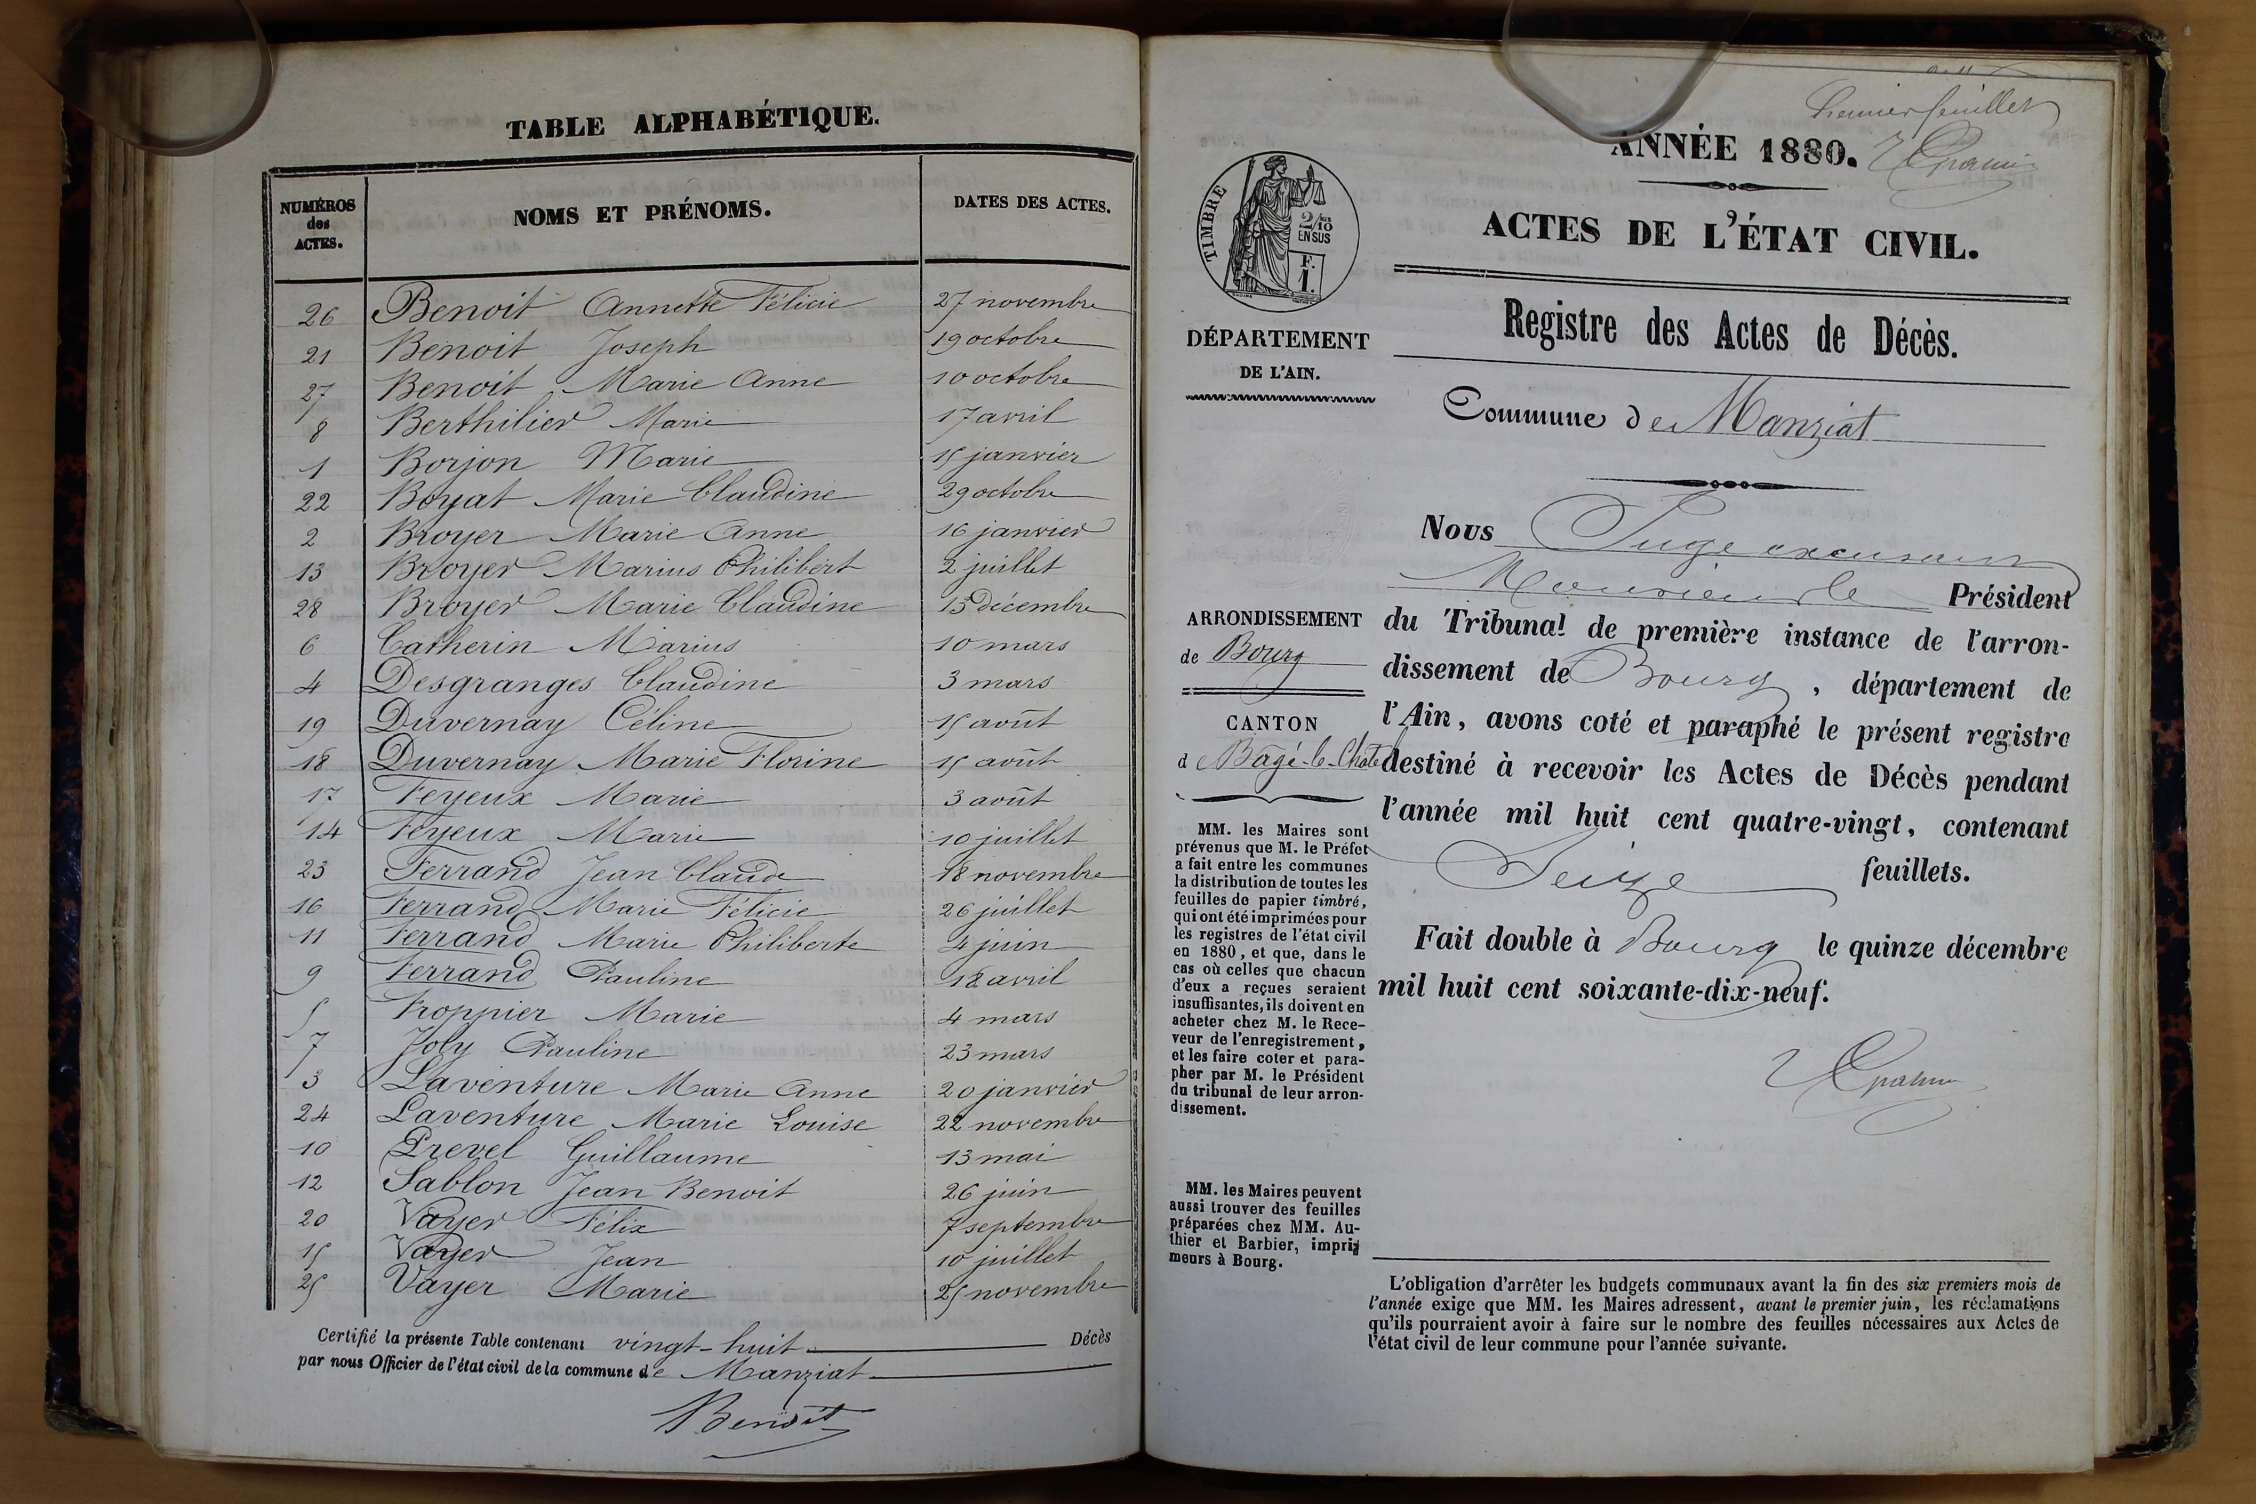 TABLE ALPHABÉTIQUE.
NUMÉROS des ACTES. NOMS ET PRÉNOMS. DATES DES ACTES.
26 Benoit Annette Félicie 27 novembre
21 Benoit Joseph 19 octobre
27 Benoit Marie Anne 10 octobre
8 Berthilier Marie 17 avril
1 Borjon Marie 15 janvier
22 Boyat Marie Claudine 29 octobre
2 Broyer Marie Anne 16 janvier
13 Broyer Marius Philibert 2 juillet
28 Broyer Marie Claudine 13 décembre
6 Catherin Marius 10 mars
4 Desgranges Claudine 3 mars
19 Duvernay Céline 15 août
18 Duvernay Marie Florine 15 août
17 Feyeux Marie 3 août
14 Feyeux Marie 10 juillet
23 Ferrand Jean Claude 18 novembre
16 Ferrand Marie Félicie 26 juillet
11 Ferrand Marie Philiberte 4 juin
9 Ferrand Pauline 18 avril
5 Froppier Marie 4 mars
7 Joly Pauline 23 mars
3 Laventure Marie Anne 20 janvier
24 Laventure Marie Louise 22 novembre
10 Prevel Guillaume 13 mai
12 Sablon Jean Benoit 26 juin
20 Vayer Félix 7 septembre
15 Vayer Jean 10 juillet
25 Vayer Marie 25 novembre
Certifié la présente Table contenant vingt-huit Décès
par nous Officier de l'état civil de la commune de Manziat
Benoît
Premier feuillet
ANNÉE 1880.
ACTES DE L'ÉTAT CIVIL.
Registre des Actes de Décès.
TIMBRE
2/10
EN SUS
F.
1.
DÉPARTEMENT
DE L'AIN.
ARRONDISSEMENT
de Bourg
CANTON
de Bagé-le-Chatel
MM. les Maires sont
prévenus que M. le Préfet
a fait entre les communes
la distribution de toutes les
feuilles de papier timbré,
qui ont été imprimées pour
les registres de l'état civil
en 1880, et que, dans le
cas où celles que chacun
d'eux a reçues seraient
insuffisantes, ils doivent en
acheter chez M. le Rece-
veur de l'enregistrement,
et les faire coter et para-
pher par M. le Président
du tribunal de leur arron-
dissement.
MM. les Maires peuvent
aussi trouver des feuilles
préparées chez MM. Au-
thier et Barbier, impri-
meurs à Bourg.
Commune de Manziat
Nous Juge
Monsieur le Président
du Tribunal de première instance de l'arron-
dissement de Bourg, département de
l'Ain, avons coté et paraphé le présent registre
destiné à recevoir les Actes de Décès pendant
l'année mil huit cent quatre-vingt, contenant
Seize feuillets.
Fait double à Bourg le quinze décembre
mil huit cent soixante-dix-neuf.
L'obligation d'arrêter les budgets communaux avant la fin des six premiers mois de
l'année exige que MM. les Maires adressent, avant le premier juin, les réclamations
qu'ils pourraient avoir à faire sur le nombre des feuilles nécessaires aux Actes de
l'état civil de leur commune pour l'année suivante.